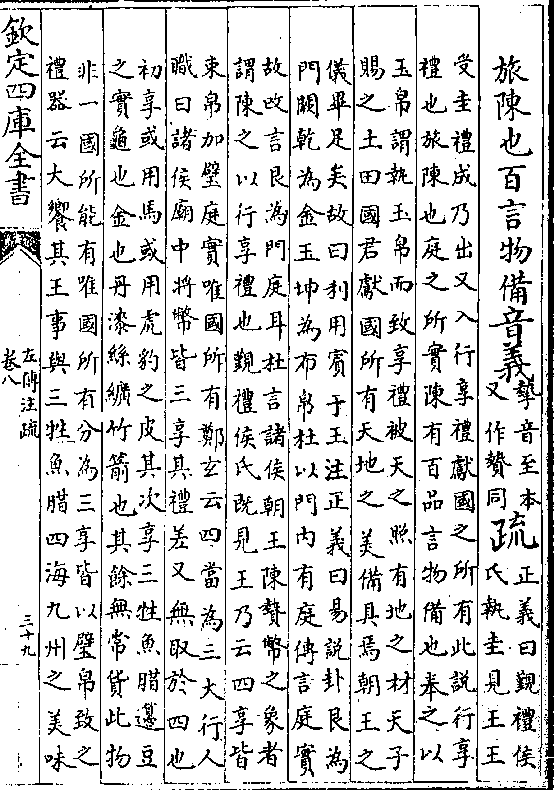 旅陳也百言物備音義贄音至本又作贄同疏正義曰覲禮侯氏執圭見王王
受圭禮成乃出又入行享禮獻國之所有此說行享
禮也旅陳也庭之所實陳有百品言物備也奉之以
玉帛謂執玉帛而致享禮被天之照有地之材天子
賜之土田國君獻國所有天地之美備具焉朝王之
儀畢足矣故曰利用賓于王注正義曰易說卦艮為
門闕乾為金玉坤為布帛杜以門內有庭傳言庭實
故改言艮為門庭耳杜言諸侯朝王陳贄幣之象者
謂陳之以行享禮也覲禮侯氏既見王乃云四享皆
束帛加璧庭實唯國所有鄭玄云四當為三大行人
職曰諸侯廟中將幣皆三享其禮差又無取於四也
初享或用馬或用虎豹之皮其次享三牲魚腊籩豆
之實龜也金也丹漆絲纊竹箭也其餘無常貨此物
非一國所能有唯國所有分為三享皆以璧帛致之
禮器云大饗其王事與三牲魚腊四海九州之美味
欽定四庫全書
左傳注疏
卷八
三十九